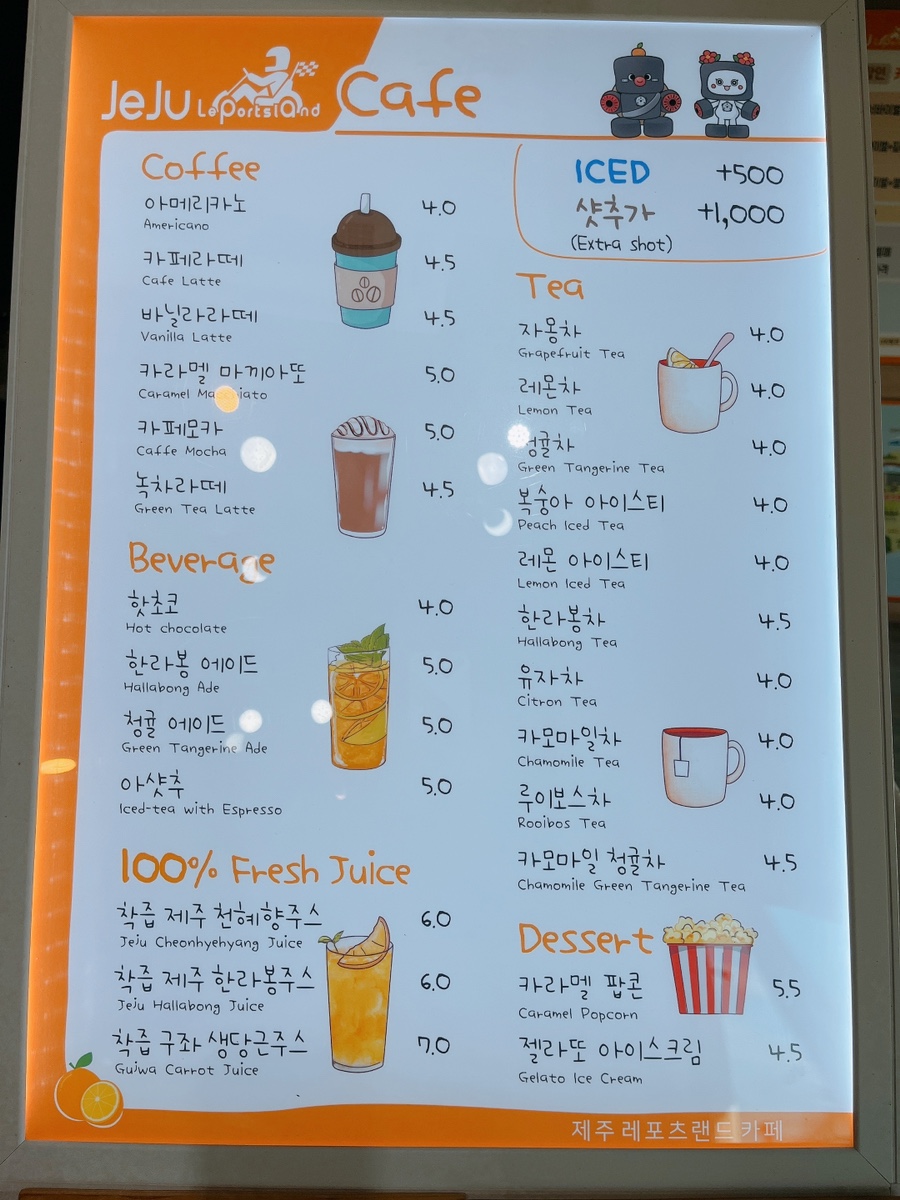 JeJu LeportsLand Cafe
Coffee
아메리카노 4.0
Americano
카페라떼 4.5
Cafe Latte
바닐라라떼 4.5
Vanilla Latte
카라멜 마끼아또 5.0
Caramel
카페모카 5.0
Caffe Mocha
녹차라떼 4.5
Green Tea Latte
Beverage
핫초코 4.0
Hot chocolate
한라봉 에이드 5.0
Hallabong Ade
청귤 에이드 5.0
Green Tangerine Ade
아샷추 5.0
Iced-tea with Espresso
100% Fresh Juice
착즙 제주 천혜향주스 6.0
Jeju Cheonhyehyang Juice
착즙 제주 한라봉주스 6.0
Jeju Hallabong Juice
착즙 구좌 생당근주스 7.0
Gujwa Carrot Juice
ICED +500
샷추가 +1,000
(Extra shot)
Tea
자몽차 4.0
Grapefruit Tea
레몬차 4.0
Lemon Tea
청귤차 4.0
Green Tangerine Tea
복숭아 아이스티 4.0
Peach Iced Tea
레몬 아이스티 4.0
Lemon Iced Tea
한라봉차 4.5
Hallabong Tea
유자차 4.0
Citron Tea
카모마일차 4.0
Chamomile Tea
루이보스차 4.0
Rooibos Tea
카모마일 청귤차 4.5
Chamomile Green Tangerine Tea
Dessert
카라멜 팝콘 5.5
Caramel Popcorn
젤라또 아이스크림 4.5
Gelato Ice Cream
제주 레포츠랜드 카페